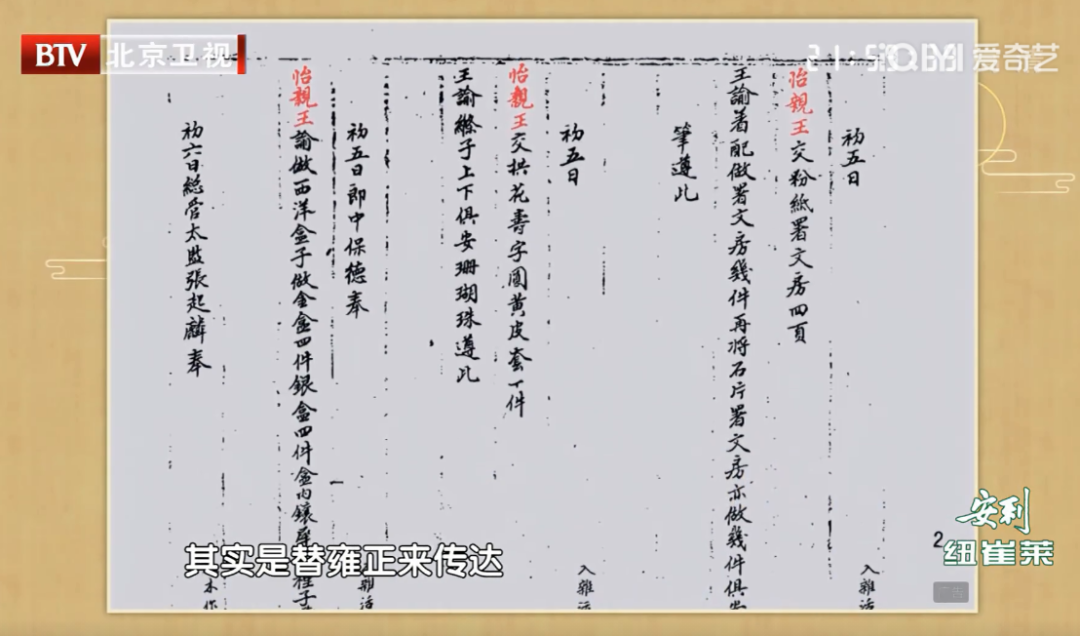 BTV 北京卫视
爱奇艺
初五日
怡親王交粉紙署文房四頁
王諭着配做署文房幾件再將石片署文房亦做幾件俱
筆遵此
入雜活
初五日
怡親王交拱花壽字圓黃皮套一件
王諭縧子上下俱安珊瑚珠遵此
入雜
初五日郎中保德奉
怡親王諭做西洋盒子做金盒四件銀盒四件盒內鑲
雜活
初六日總管太監張起麟奉
其实是替雍正来传达
2
安利
纽崔莱
广告